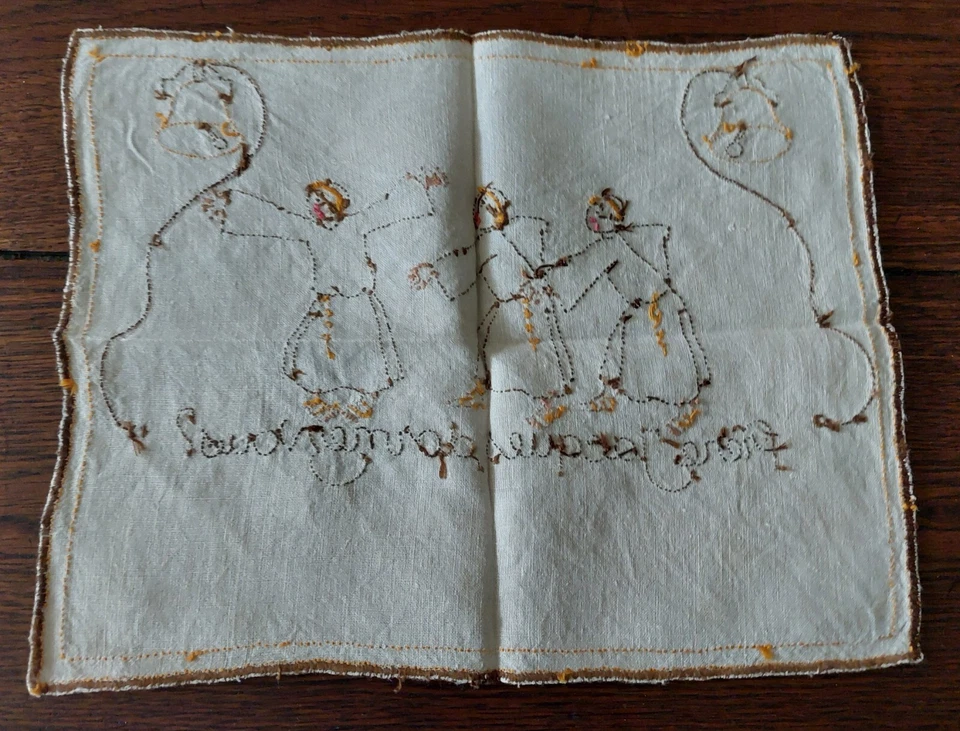 Frère Jacques, dormez vous?